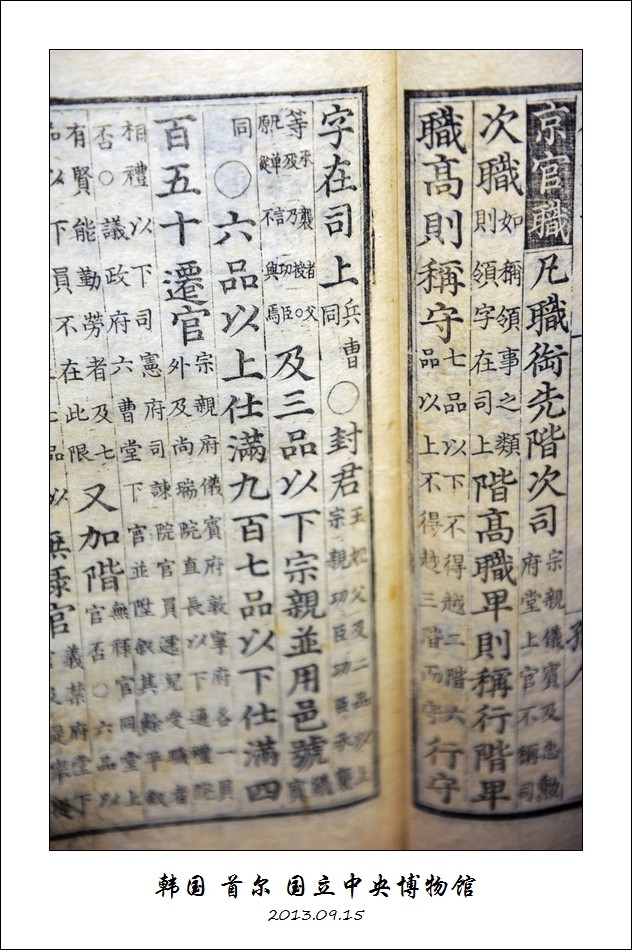 京官職 凡職銜先階次司
宗親儀賓及忠勳
府堂上官不稱司
次職
如稱領事之類
則領字在司上
階高職卑則稱行階卑
職高則稱守
七品以下不得越二階六
品以上不得越三階而守
行守
字在司上
兵曹
同
○封君
王妃父及二品以上
宗親功臣功臣承襲
等
及三品以下宗親並用邑號
同
○六品以上仕滿九百七品以下仕滿四
百五十遷官
宗親府儀賓府敦寧府各一員
外及尚瑞院直長以下通禮院
相禮以下司憲府司諫院官員遞兒受職者
否○議政府六曹堂下官並陞敍其餘平敍
有賢能勤勞者及七
品以下員不在此限
又加階
無祿官同堂上
官否○六品以
祿官
韩国 首尔 国立中央博物馆
2013.09.15